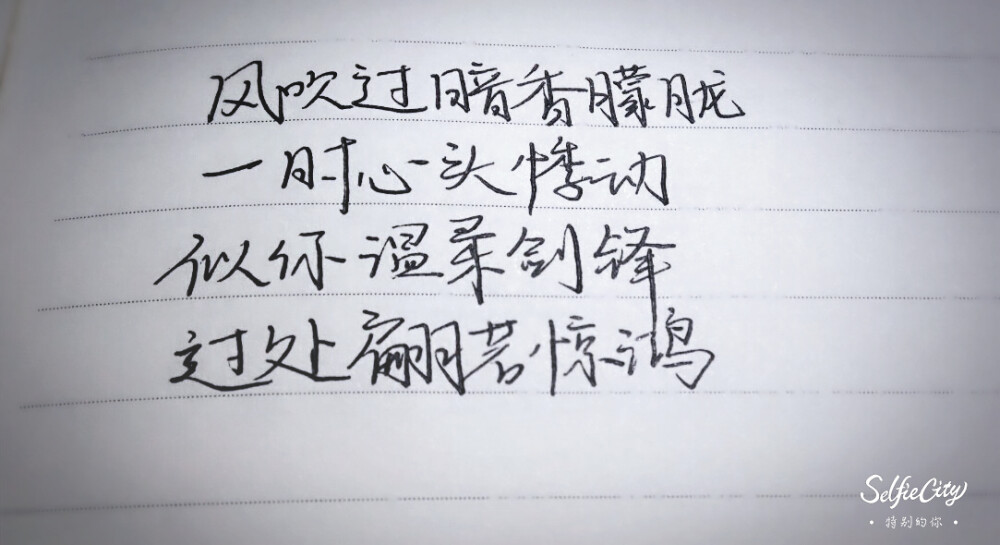 风吹过暗香朦胧
一时心头悸动
似你温柔剑锋
过处翩若惊鸿
SelfieCity
· 特别的你 ·